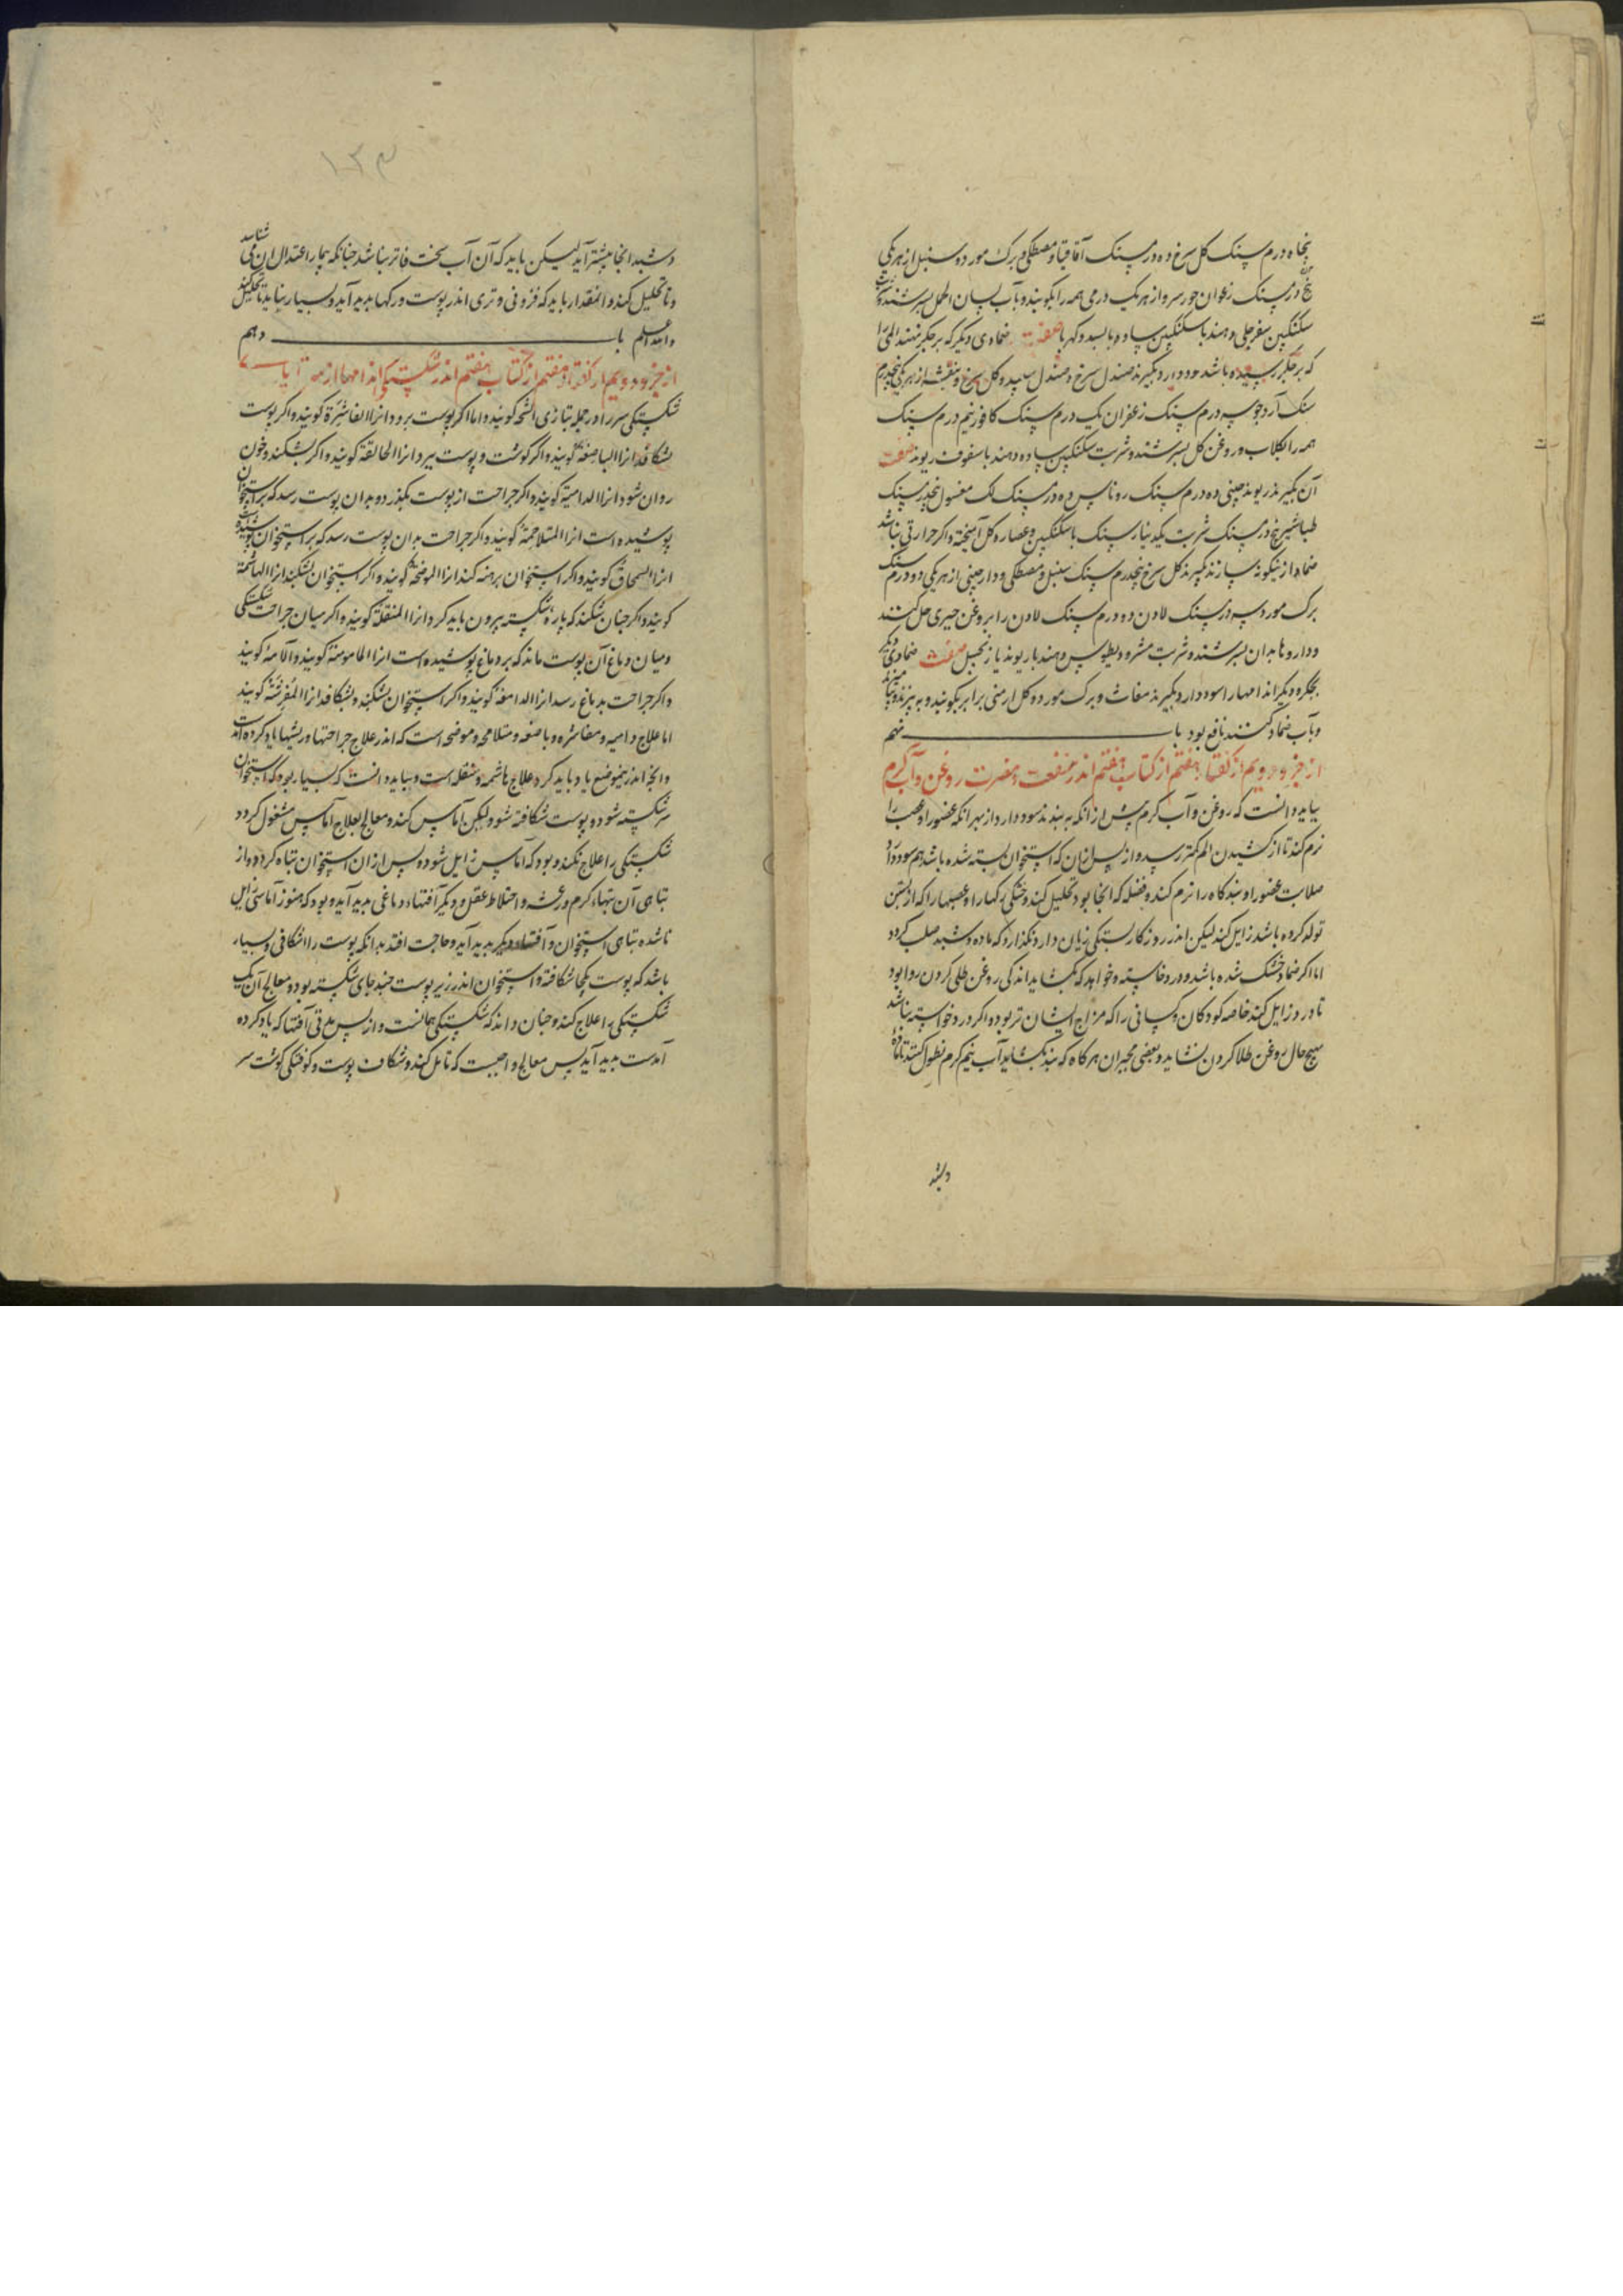 پنجاه درم سنک کل سرخ ده درم سنک آقاقیا و مصطکی و برک مورد و سنبل از هر یکی
پنج درم سنک زعفران جوز سرو از هر یک درمی همه را بکوبند و بآب لسان الحمل بسرشند
سکنکبین سفرجلی دهند با سکنکبین ساده یا بسد و کهربا صفت ضمادی دیکر که بر جکر نهند المی را
که بر جکر رسیده باشد سود دارد بکیرند صندل سرخ و صندل سپید و کل سرخ و بنفشه از هر یکی پنج درم
سنک آرد جو سه درم سنک زعفران یک درم سنک کافور نیم درم سنک
همه را بکلاب و روغن کل بسرشند و شربت سکنکبین ساده دهند با سفوف ریوند صفت
آن بکیرند ریوند چینی ده درم سنک روناس ده درم سنک لک مغسول پنج درم سنک
طباشیر پنج درم سنک شربت یکدینار سنک با سکنکبین و عصاره کل آمیخته و اکر حرارتی نباشد
ضماد از نیکونه سازند بکیرند کل سرخ پنجدرم سنک سنبل و مصطکی و دارچینی از هر یکی دو درم سنک
برک مورد سه درم سنک لادن ده درم سنک لادن را بروغن خیری حل کنند
و داروها بدان بسرشند و شربت مثرودیطوس دهند با ریوند یا زنجبیل صفت ضمادی دیکر
جکر و دیکر اندامها را سود دارد بکیرند مغاث و برک مورد و کل ارمنی برابر بکوبند و به پزند
و بآب ضماد کنند نافع بود باب نهم
از جزو دویم از کفتار هفتم از کتاب هفتم اندر منفعت و مضرت روغن و آب کرم
بباید دانست که روغن و آب کرم پیش از انکه به بندند سود دارد از بهر انکه عضو را و عصب را
نرم کند تا از کشیدن الم کمتر رسد و از پس ازان که استخوان بسته شده باشد هم سود دارد
صلابت عضو را و بندکاه را نرم کند و فضله که انجا بود تحلیل کند و خشکی رکها را و عصبها را که از بستن
تولد کرده باشد زایل کند لیکن اندر روزکار بستکی زیان دارد و نکذارد که ماده دشبد صلب کردد
اما اکر ضماد خشک شده باشد و درد خاسته و خواهد که بکشاید اندکی روغن طلی کردن روا بود
تا درد زایل کند خاصه کودکان و کسانی را که مزاج ایشان تر بود و اکر درد خواسته نباشد
هیچ حال روغن طلا کردن نشاید و بعضی مجبران هر کاه که بند بکشاید آب نیم کرم نطول کنند تا ماده
دشبد
۱۳۴
دشبد انجا بیشتر آید لیکن باید که آن آب سخت فاتر نباشد چنانکه بیمار اعتدال ان می شناسد
و تا تحلیل کند و انمقدار باید که فزونی و تری اندر پوست و رکها پدید آید و بسیار نباید تا تحلیل کند
والله اعلم باب دهم
از جزو دویم از کفتار هفتم از کتاب هفتم اندر شکستکی اندامها از سر تا پای
شکستکی سر را در جمله بتازی الشجه کویند و اما اکر پوست برود انرا القاشرة کویند و اکر پوست
بشکافد انرا الباضعة کویند و اکر کوشت و پوست ببرد انرا الحالقة کویند و اکر بشکند و خون
روان شود انرا الدامیة کویند و اکر جراحت از پوست بکذرد و بدان پوست رسد که بر استخوان
پوشیده است انرا المتلاحمة کویند و اکر جراحت بدان پوست رسد که بر استخوان پوشیده
انرا السمحاق کویند و اکر استخوان برهنه کند انرا الموضحة کویند و اکر استخوان بشکند انرا الهاشمة
کویند و اکر چنان بشکند که پارۀ شکسته بیرون باید کرد انرا المنقلة کویند و اکر میان جراحت شکستکی
و میان دماغ آن پوست ماند که بر دماغ پوشیده است انرا المامومة کویند و آلامة کویند
و اکر جراحت بدماغ رسد انرا الدامغة کویند و اکر استخوان بشکند و بشکافد انرا المفرشة کویند
اما علاج دامیه و مقاشره و باضعه و متلاحمه و موضحه است که اندر علاج جراحتها و ریشها یاد کرده امد
و انچ اندرینموضع یاد باید کرد علاج هاشمه و منقله است و بباید دانست که بسیار بود که استخوان
سر شکسته شود و پوست شکافته شود و لیکن آماس کند و معالج بعلاج آماس مشغول کردد
شکستکی را علاج نکند و بود که آماس زایل شود و پس ازان استخوان تباه کردد و از
تباهی آن تبهاء کرم و رعشه و اختلاط عقل و دیکر آفتهاء دماغی پدید آید و بود که هنوز آماسش زایل
ناشده تباهی استخوان و آفتهاء دیکر پدید آید و حاجت افتد بدانکه پوست را شکافی و بسیار
باشد که پوست یکجا شکافته و استخوان اندر زیر پوست چند جای شکسته بود و معالج آن یک
شکستکی را علاج کند و چنان داند که شکستکی همانست و از پس مدتی آفتها که یاد کرده
آمدست پدید آید پس معالج واجبست که تامل کند و شکاف پوست و کوفتکی کوشت سر